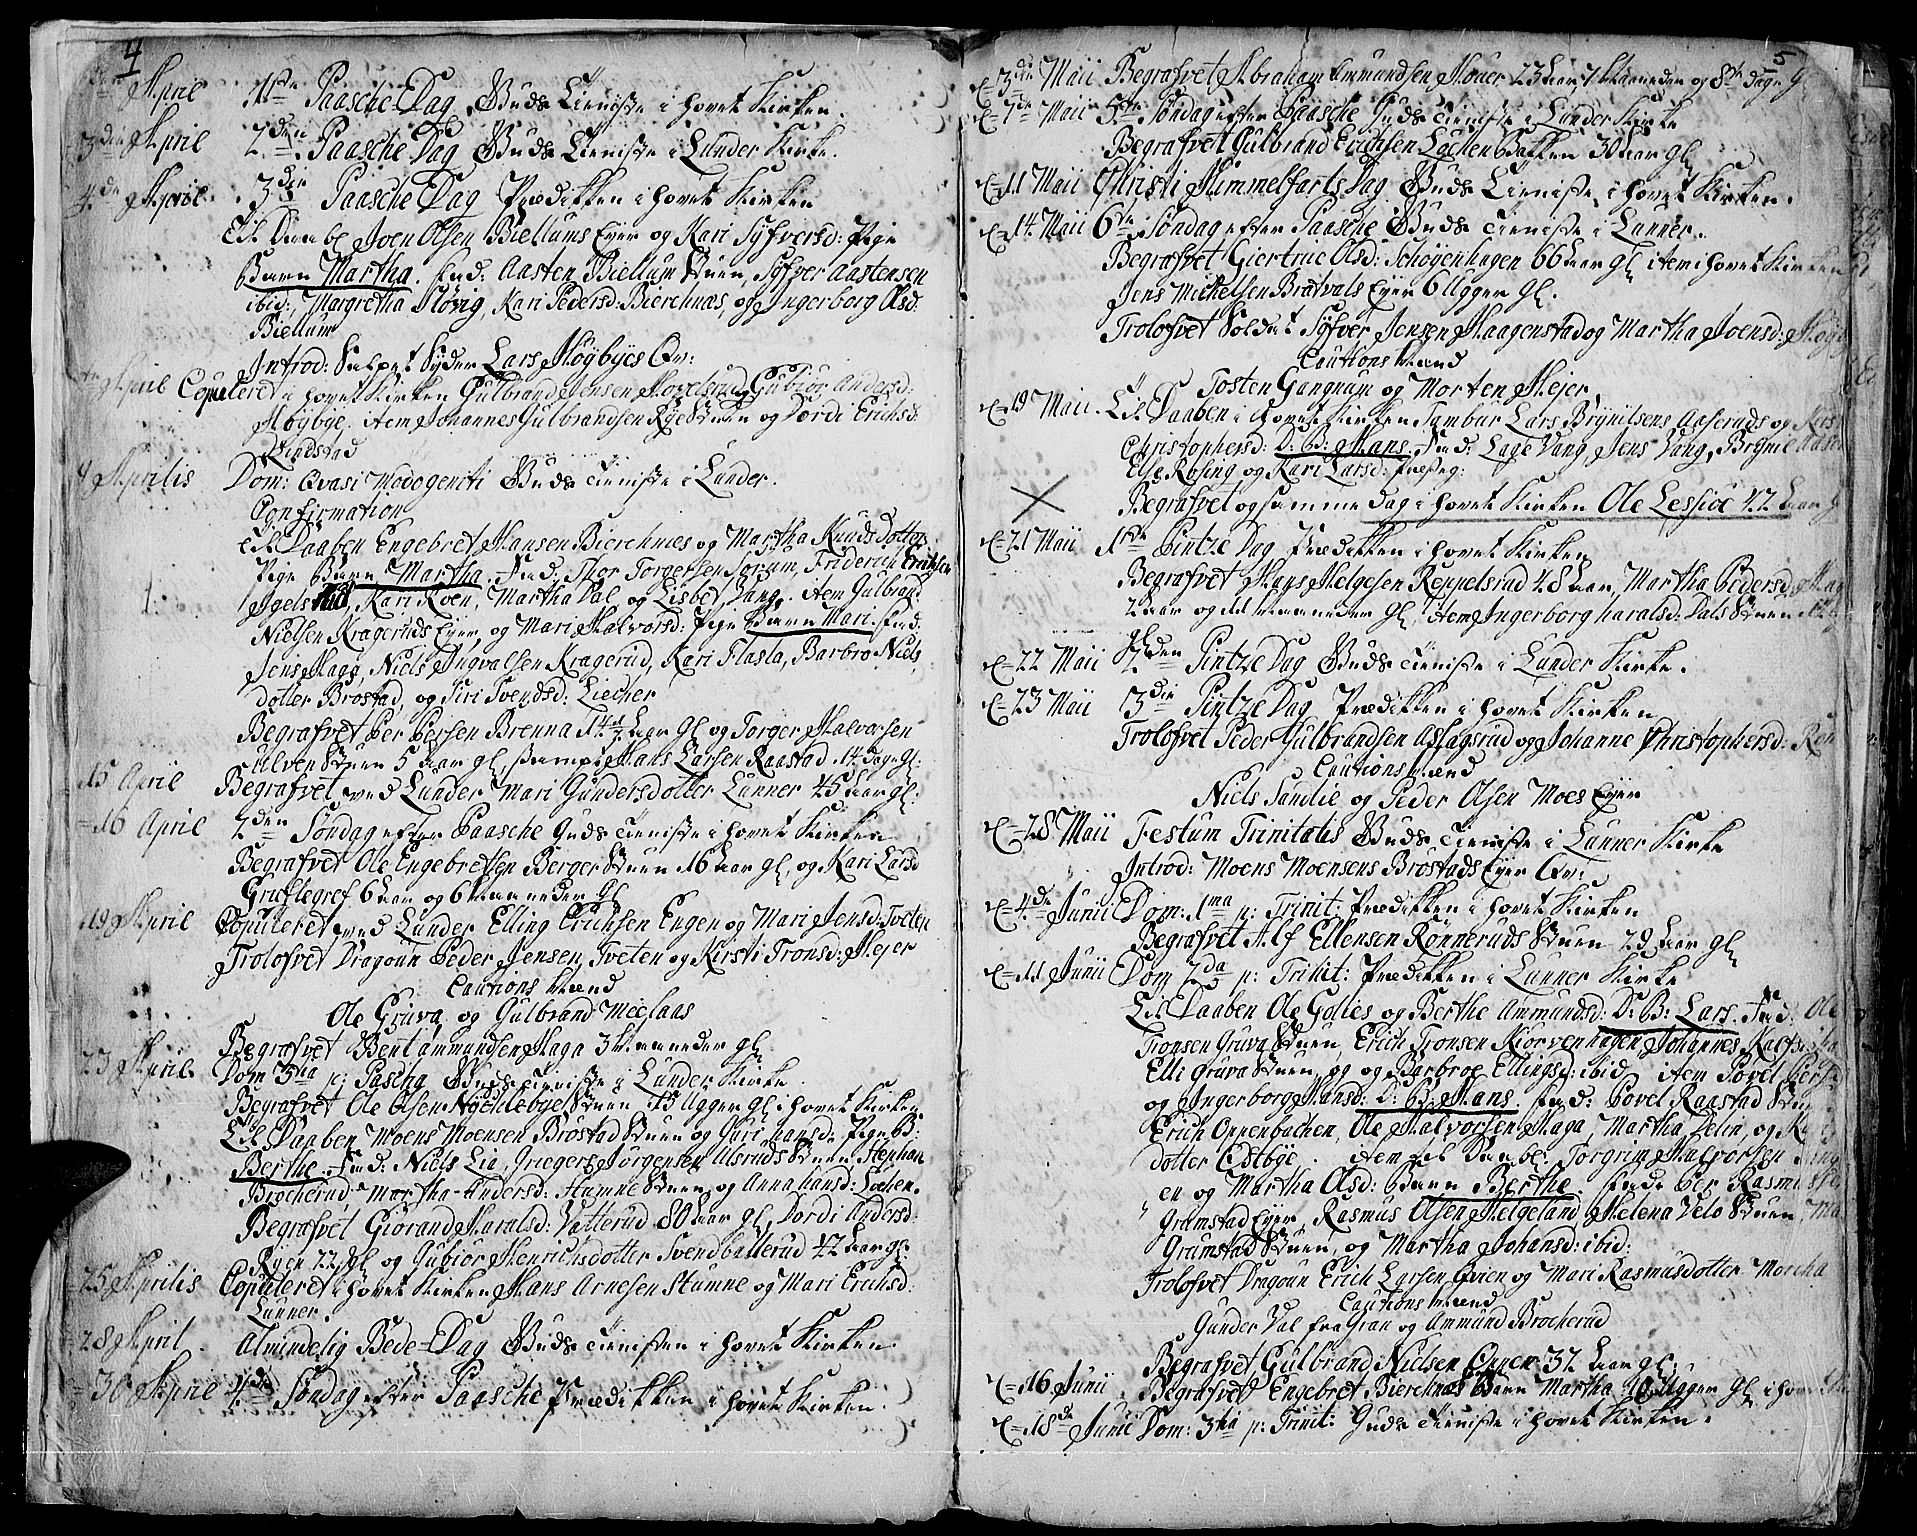 4
April 1ste Paasche Dag Guds Tieniste i Hovet Kirken.
3die April 2den Paasche Dag Guds Tieniste i Lunder Kirke.
4de April. 3die Paasche Dag Prædikken i Hovet Kirken
Til Daab bl Joen Olsen Biellums Eyer og Kari Syfversd: Pige
Barn Martha. Fad: Aasten Biellum Stuen, Syfver Aastensen
ibid:, Margretha Høvig, Kari Pedersd: Bierchnæs, og Ingerborg Olsd:
Biellum
Introd: Salpet Syder Lars Høybyes Qv:
April Copuleret i Hovet Kirken Gulbrand Jensen Hovelsrud Gubiør Andersd:
Høybye. item Johannes Gulbrandsen Rye Stuen og Dordi Erichsd:
Rindstad
9 Aprilis Dom: Qvasi Modogeniti Guds Tieniste i Lunder.
Confirmation
Til Daaben Engebret Hansen Bierchnæs og Martha Knuds Dotter
Pige Barn Martha. Fad: Thor Torgersen Sorum, Friderich Erichsen
Igelsrud, Kari Roen, Martha Dal og Lisbet Vang. item Gulbrand
Nielsen Kragerids Eyer, og Mari Halvorsd: Pige Barn Mari. Fad:
Jens Haga, Niels Ingvalsen Kragerud, Kari Flasla, Barbro Niels
dotter Brostad, og Siri Svendsd: Liecher
Begrafvet Per Persen Brenna 14 1/2 Aar gl og Torger Halvorsen
Ulven Stuen 5 Aar gl, samt Hans Larsen Raastad 14 Dage gl:
15 April Begrafvet ved Lunder Mari Gundersdotter Lunner 45 Aar gl:
16 April 2den Søndag efter Paasche Guds Tieniste i Hovet Kirken
Begrafvet Ole Engebretsen Berger Stuen 16 Aar gl, og Kari Larsd
Griflegref 6 Aar og 6 Maaneder gl
19 April Copuleret ved Lunder Elling Erichsen Engen og Mari Jensd: Tveten
Trolofvet Dragoun Peder Jensen Tveten og Kirsti Tronsd: Hejer
Cautions Mænd
Ole Gruva og Gulbrand Meclaas
Begrafvet Bent Ammundsen Haga 3 Maaneder gl
23 April. Dom 3tia p: Pascha Guds Tieniste i Lunder Kirke.
Begrafvet Ole Olsen Nochlebye Stuen 15 Ugger gl i Hovet Kirken
Til Daaben Moens Moensen Brostad Stuen og Guri Hansd: Pige B:
Berthe. Fad: Niels Lia, Griegers Jørgensen Alsruds Stuen Stephan
Brocherud, Martha Andersd: Stumne Stuen og Anna Hansd: Sochen.
Begrafvet Giørand Haralsd: Vatterud 80 Aar gl, Dordi Andersd:
Ryen 22 gl og Gubiør Henrichsdotter Svendballerud 42 Aar gl:
25 Aprilis Copuleret i Hovet Kirken Hans Arnesen Stumne og Mari Erichsd:
Lunner.
28 April. Almindelig Bede-Dag Guds Tieniste i Hovet Kirken
30 April 4de Søndag efter Paasche Prædikken i Hovet Kirken.
5
d. 3die Maii Begrafvet Abraham Ammundsen Mouer 23 Aar 7 Maaneder og 8te dage gl
d. 7de Maii 5te Søndag efter Paasche Guds Tieniste i Lunder Kirke
Begrafvet Gulbrand Erichsen Lochen Bakken 30 Aar gl
d. 11 Maii Christi Himmelfarts Dag Guds Tieniste i Hovet Kirken.
d. 14. Maii 6te Søndag efter Paasche Guds Tieniste i Lunner.
Begrafvet Giertrue Olsd: Schøgenhagen 66 Aar gl item i Hovet Kirken
Jens Michelsen Bratvals Eyer 6 Ugger gl.
Trolofvet Soldat Syfver Jensen Haagenstad og Martha Joensd: Høyb
Cautions Mænd
Tosten Gangnum og Morten Hejer
d. 19 Maii. Til Daaben i Hovet Kirken Tambur Lars Brynilsens Aaserads og
Christophersd: D: B: Hans. Fad: Lage Vang, Jens Vang, Brynil Aaser
Elle Rosing og Kari Larsd:
Begrafvet og samme Dag i Hovet Kirken Ole Lessiøe 42 Aar gl
d. 21 Maii 1ste Pintze Dag Prædikken i Hovet Kirken
Begrafvet Hans Helgesen Reppelsrad 48 Aar, Martha Pedersd, Hag
2 Aar og Maaneder gl, item Ingerborg Haralsd: Dals Stuen
gl
d. 22 Maii 2den Pintze Dag Guds Tieniste i Lunder Kirke.
d. 23 Maii 3die Pintze Dag Prædikken i Hovet Kirken
Trolofvet Peder Gulbrandsen Aslagsrud og Johanne Christophersd: Røn
Cautions Mænd
Niels Sandlie og Peder Olsen Moes Eyer
d. 28 Maii Festum Trinitatis Guds Tieniste i Lunner Kirke
Introd: Moens Moensens Brostads Eyer Qv:
d. 4de Junii Dom: 1ma p: Trinit: Prædikken i Hovet Kirken
Begrafvet Alf Ellensen Rønneruds Stuen 29 Aar gl
d. 11 Junii Dom 2da p: Trinit: Prædikken i Lunner Kirke
Til Daaben Ole Golies og Berthe Ammundsd: D: B: Lars. Fad: Ole
Tronsen Gruva Stuen, Erich Tronsen Kiorvenhagen Johannes
Elli Gruva Stuen, og Barbroe Ellingsd: ibid. item Povel Pers
og Ingerborg Hansd: D: B: Hans. Fad: Povel Raastad Stu
Erich Oppenbachen, Ole Halvorsen Haga, Martha Velin, og
dotter Østbye. item Til Daab bl: Torgrim Halvorsen
en og Martha Olsd: Barn Berthe. Fad: Per Rasmus
Gramstad Eyer, Rasmus Olsen Helgeland, Helena Velo Stuen, Ma
Gramstad Stuen, og Martha Johansd: ibid:
Trolofvet Dragoun Erich Larsen Gvien og Mari Rasmusdotter Morcha
Cautions Mænd
Gunder Dal fra Gran og Ammund Brocherud
Begrafvet Gulbrand Nielsen Oppen 37 Aar gl:
d. 16 Junii Begrafvet Engebret Bierchnæs Barn Martha 10 Ugger gl i Hov
d. 18de Junii Dom: 3tia p: Trinit: Guds Tieniste i Hovet Kirken.